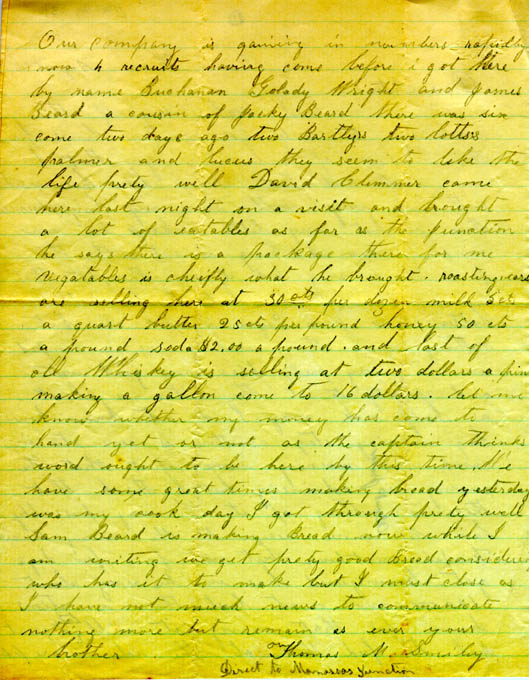 Our company is gaining in numbers rapidly
now 4 recruits having come before i got here
by name Buchanan Golady Wright and James
Beard a couson of Jacky Beard there was six
come two days ago two Barttys two lottses
palmer and lucus they seem to like the
life prety well David Clemmer came
here last night on a visit and brought
a lot of eatables as far as the function
he says there is a package there for me
vegatables is cheifly what he brought . roastingyears
are selling here at 30 cts per dozen milk 5 cts
a quart butter 25 cts per pound honey 50 cts
a pound soda $2.00 a pound . and last of
all Whiskey is selling at two dollars a pint
making a gallon come to 16 dollars . let me
know whether my money has come to
hand yet or not as the captain thinks
word ought to be here by this time. We
have some great times making bread yesterday
was my cook day I got through prety well
Sam Beard is making Bread now while I
am writing we get prety good Bread considering
who has it to make but I must close as
I have not much news to communicate
nothing more but remain as ever your
brother Thomas M Smiley
Direct to Manassas Junction